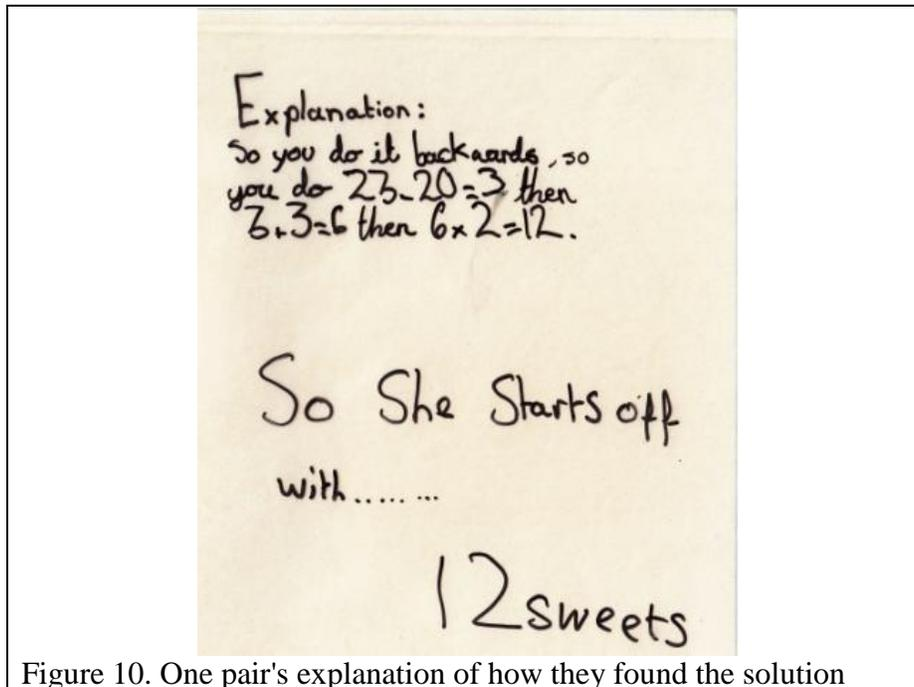 Explanation:
So you do it backwards, so
you do 23-20=3 then
3+3=6 then 6x2=12.
So She Starts off
with........
12 sweets
Figure 10. One pair's explanation of how they found the solution